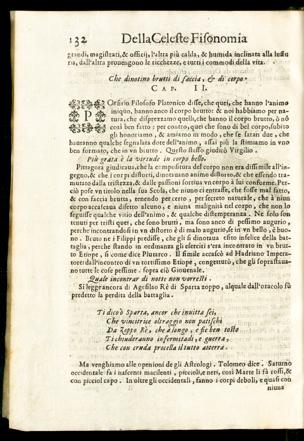 132 Della Celeste Fisonomia
grandi, magistrati, & officij, l'altra più calda, & humida inclinata alla lussu
ria, dall'altra prouengono le ricchezze, e tutti i commodi della vita.
Che dinotino brutti di faccia, & di corpo.
CAP. II.
POrfirio Filosofo Platonico disse, che quei, che hanno l'animo
iniquo, hanno ancora il corpo brutto: & noi habbiamo per na-
tura, che disprezzamo quelli, che hanno il corpo brutto, ò nõ
così ben fatto; per contro, quei che sono di bel corpo, subito
gli honoriamo, & amiamo in modo, che se
hauranno qualche segnalata dote dell'animo, assai più la stimiamo in vno
ben formato, che in vn brutto. Questo stesso giudicò Virgilio.
Più grata è la virtude in corpo bello.
Pittagora giudicaua, che la compositura del corpo non era difsimile all'in-
gegno, & che i corpi distorti, dinotauano animo distorto, & che essendo tra-
mutato dalla tristezza, & dalle passioni sortiua vn corpo à lui conforme. Per-
ciò pose vn titolo nella sua Scola, che niuno ci entrasse, che fosse mal fatto,
& con faccia brutta, tenendo per certo, per secreto naturale, che à niun
corpo accascaua difetto alcuno, e niuna malignità nel corpo, che non lo
seguisse qualche vitio dell'animo, & qualche distemperanza. Ne solo son
tenuti per tristi quei, che sono brutti, ma sono anco di pessimo augurio,
perche incontrandosi in vn distorto è di malo augurio, se in vn bello, è buo-
no. Bruto ne i Filippi predisse, che gli si dinotaua esso infelice della bat-
taglia, perche stando in ordinanza gli eserciti s'era incontrato in vn brut-
to Etiope, si come dice Plutarco. Il simile accascò ad Hadriano Impera-
tore: dall'incontro di vn tortissimo Etiope, congetturò, che gli soprastaua-
no tutte le cose pessime sopra ciò Giouenale.
Quale incontrar di notte non vorresti.
Si legge ancora di Agesilao Rè di Sparta zoppo, al quale dall'oracolo fù
predetto la perdita della battaglia.
Ti dico ò Sparta, ancor che inuitta sei,
Che vincitrice oltraggio non patischi
Da Zoppo Rè, che à lungo, e sie ben tosto
Ti chiuderanno infermitadi, e guerra,
Che con cruda procella il tutto atterra.
Ma venghiamo alle openioni de gli Astrologi. Tolomeo dice. Saturno
occidentale fà i nascenti macilenti, piccioli, e neri, così Marte li fà cotti, &
con piccioi capo. In oltre gli occidentali, fanno i corpi deboli, e quasi con
niuna